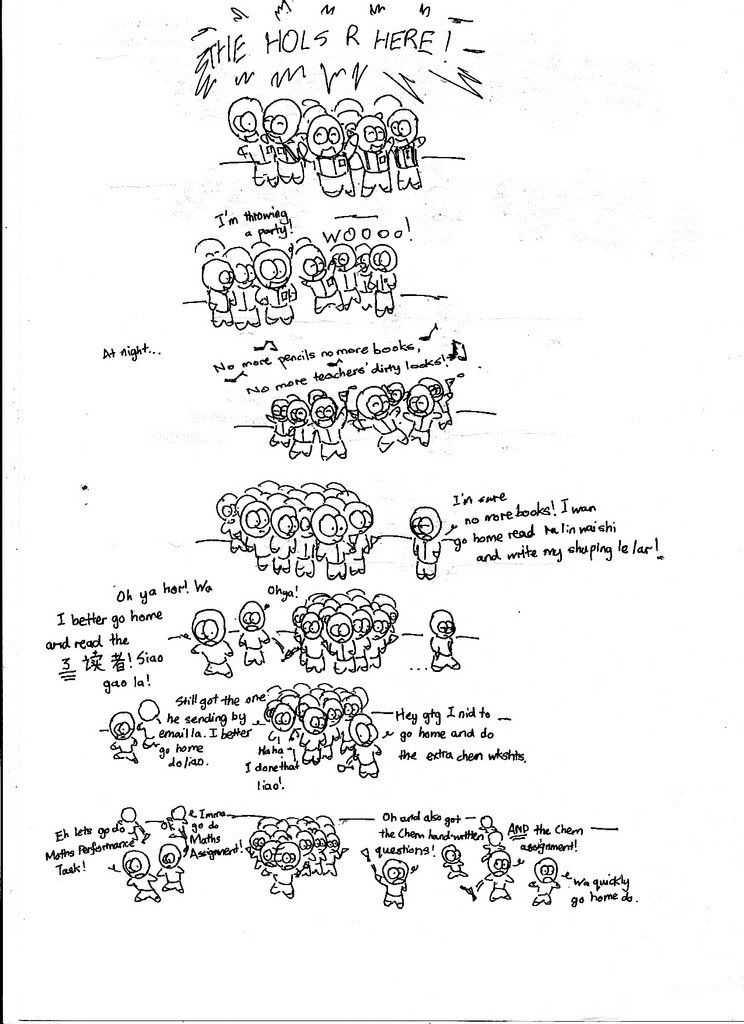 THE HOLS R HERE!
I'm throwing
a party!
WOOOO!
At night...
No more pencils no more books,
No more teachers' dirty looks!
I'm sure
no more books! I wan
go home read Mulin waishi
and write my shuping le lar!
Oh ya hor! Wa
I better go home
and read the
3 读者! Siao
gao la!
Oh ya!
...
Still got the one
he sending by
email la. I better
go home
do liao.
Haha
I done that
liao!
Hey gtg I nid to
go home and do
the extra chem wkshts.
Eh lets go do
Maths Performance
Task!
OK
I mma
go do
Maths
Assignment!
Oh and also got
the Chem hand-written
questions!
AND the Chem
assignment!
Wa quickly
go home do.